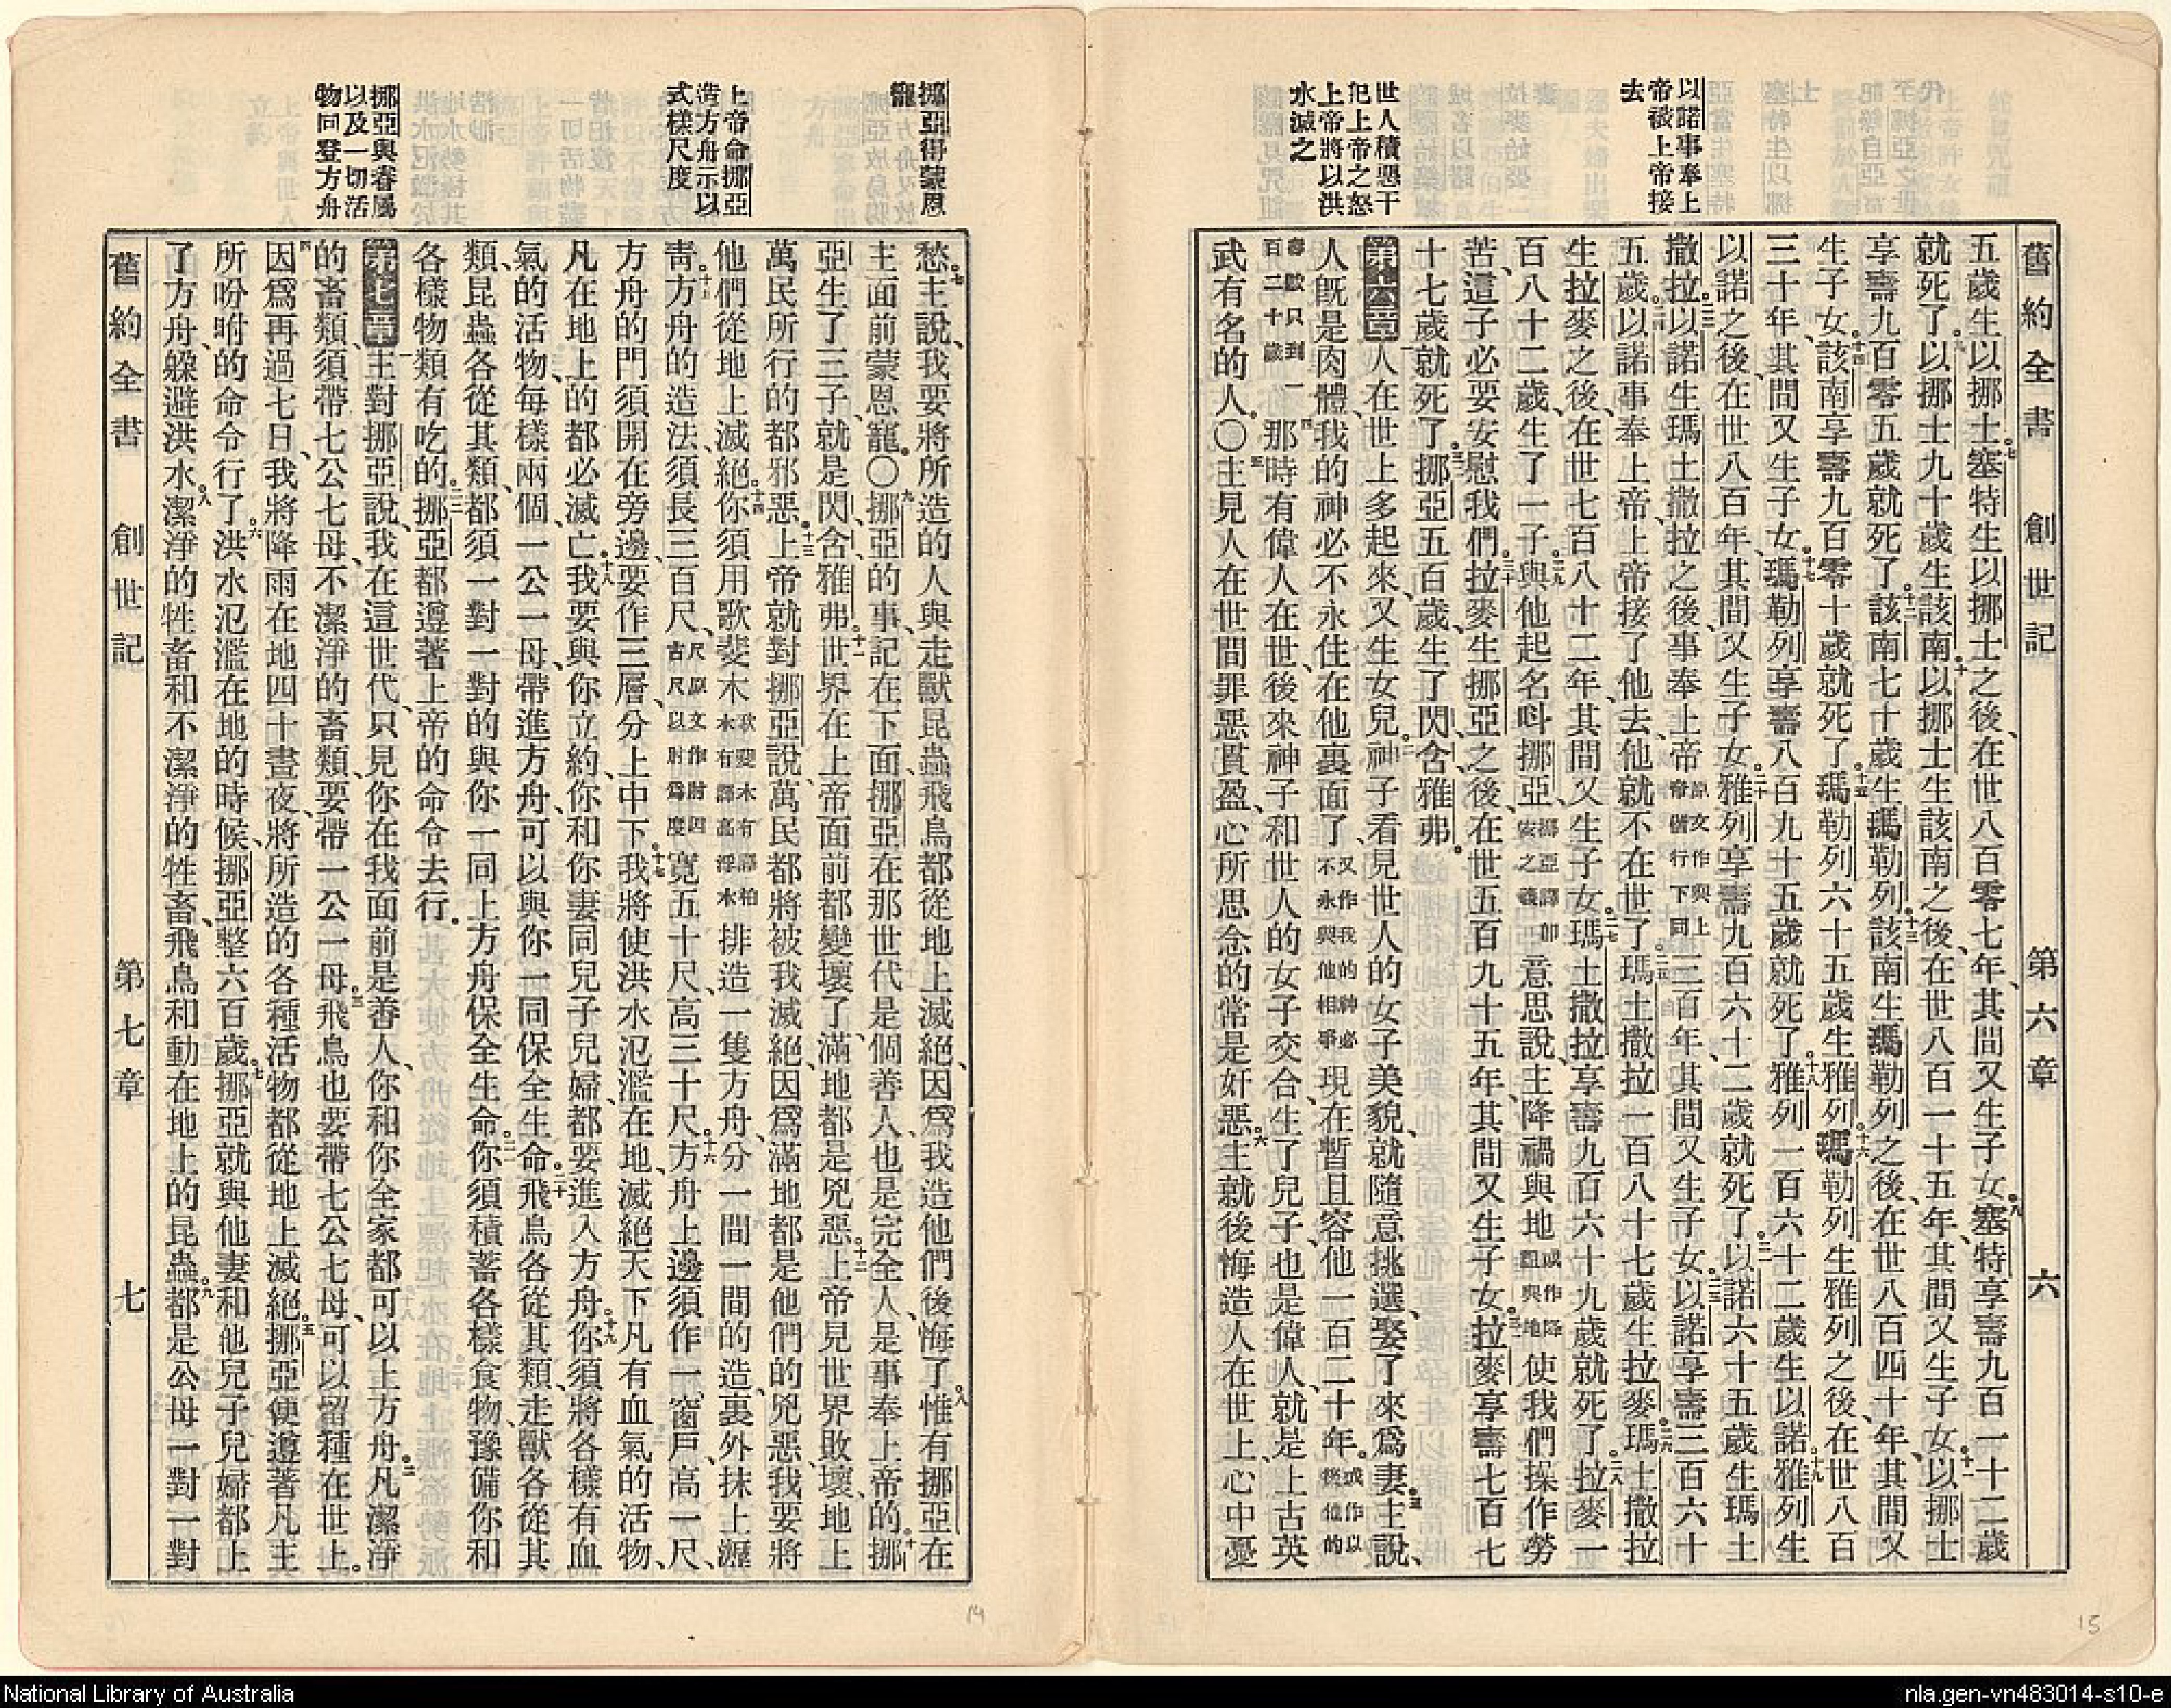 舊約全書 創世記 第六章 六
以諾事奉上
帝被上帝接
去
世人積惡干
犯上帝之怒
上帝將以洪
水滅之
五歲生以挪士。七塞特生以挪士之後、在世八百零七年、其間又生子女。八塞特享壽九百一十二歲
就死了。九以挪士九十歲生該南。十以挪士生該南之後、在世八百一十五年、其間又生子女。十一以挪士
享壽九百零五歲就死了。十二該南七十歲生瑪勒列。十三該南生瑪勒列之後、在世八百四十年、其間又
生子女。十四該南享壽九百零十歲就死了。十五瑪勒列六十五歲生雅列。十六瑪勒列生雅列之後、在世八百
三十年、其間又生子女。十七瑪勒列享壽八百九十五歲就死了。十八雅列一百六十二歲生以諾。十九雅列生
以諾之後、在世八百年、其間又生子女。二十雅列享壽九百六十二歲就死了。二一以諾六十五歲生瑪土
撒拉。二二以諾生瑪土撒拉之後、事奉上帝原文作與上帝偕行下同三百年、其間又生子女。二三以諾享壽三百六十
五歲。二四以諾事奉上帝、上帝接了他去、他就不在世了。二五瑪土撒拉一百八十七歲生拉麥。二六瑪土撒拉
生拉麥之後、在世七百八十二年、其間又生子女。二七瑪土撒拉享壽九百六十九歲就死了。二八拉麥一
百八十二歲、生了一子。二九與他起名呌挪亞、挪亞譯卽安之義意思說、主降禍與地或作降詛與地使我們操作勞
苦、這子必要安慰我們。三十拉麥生挪亞之後、在世五百九十五年、其間又生子女。三一拉麥享壽七百七
十七歲就死了。三二挪亞五百歲、生了閃、含、雅弗。
第六章一人在世上多起來、又生女兒。二神子看見世人的女子美貌、就隨意挑選、娶了來爲妻。三主說、
人旣是肉體、我的神必不永住在他裏面了、又作我的神必不永與他相爭現在暫且容他一百二十年。或作以後他的
壽數只到一百二十歲四那時有偉人在世、後來神子和世人的女子交合、生了兒子、也是偉人、就是上古英
武有名的人。〇五主見人在世間罪惡貫盈、心所思念的常是奸惡。六主就後悔造人在世上、心中憂
挪亞得蒙恩
寵
上帝命挪亞
造方舟示以
式樣尺度
挪亞與眷屬
以及一切活
物同登方舟
愁。七主說、我要將所造的人與走獸昆蟲飛鳥都從地上滅絕、因爲我造他們後悔了。八惟有挪亞在
主面前蒙恩寵。〇九挪亞的事、記在下面、挪亞在那世代是個善人、也是完全人、是事奉上帝的。十挪
亞生了三子、就是閃、含、雅弗。十一世界在上帝面前都變壞了、滿地都是兇惡。十二上帝見世界敗壞、地上
萬民所行的都邪惡。十三上帝就對挪亞說、萬民都將被我滅絕、因爲滿地都是他們的兇惡、我要將
他們從地上滅絕。十四你須用歌斐木歌斐木有譯柏木有譯高浮木排造一隻方舟、分一間一間的造、裏外抹上瀝
靑。十五方舟的造法、須長三百尺、尺原文作肘四古尺以肘爲度寬五十尺、高三十尺。十六方舟上邊須作一窗戶、高一尺、
方舟的門須開在旁邊、要作三層、分上中下。十七我將使洪水氾濫在地、滅絕天下凡有血氣的活物、
凡在地上的都必滅亡。十八我要與你立約、你和你妻同兒子兒婦、都要進入方舟。十九你須將各樣有血
氣的活物、每樣兩個、一公一母、帶進方舟、可以與你一同保全生命。二十飛鳥各從其類、走獸各從其
類、昆蟲各從其類、都須一對一對的與你一同上方舟保全生命。二一你須積蓄各樣食物、豫備你和
各樣物類有吃的。二二挪亞都遵著上帝的命令去行。
第七章一主對挪亞說、我在這世代、只見你在我面前是善人、你和你全家都可以上方舟。二凡潔淨
的畜類、須帶七公七母、不潔淨的畜類、要帶一公一母。三飛鳥也要帶七公七母、可以留種在世上。
四因爲再過七日、我將降雨在地四十晝夜、將所造的各種活物都從地上滅絕。五挪亞便遵著凡主
所吩咐的命令行了。六洪水氾濫在地的時候、挪亞整六百歲。七挪亞就與他妻和他兒子兒婦都上
了方舟、躲避洪水。八潔淨的牲畜和不潔淨的牲畜、飛鳥和動在地上的昆蟲。九都是公母一對一對
舊約全書 創世記 第七章 七
14
15
National Library of Australia
nla.gen-vn483014-s10-e